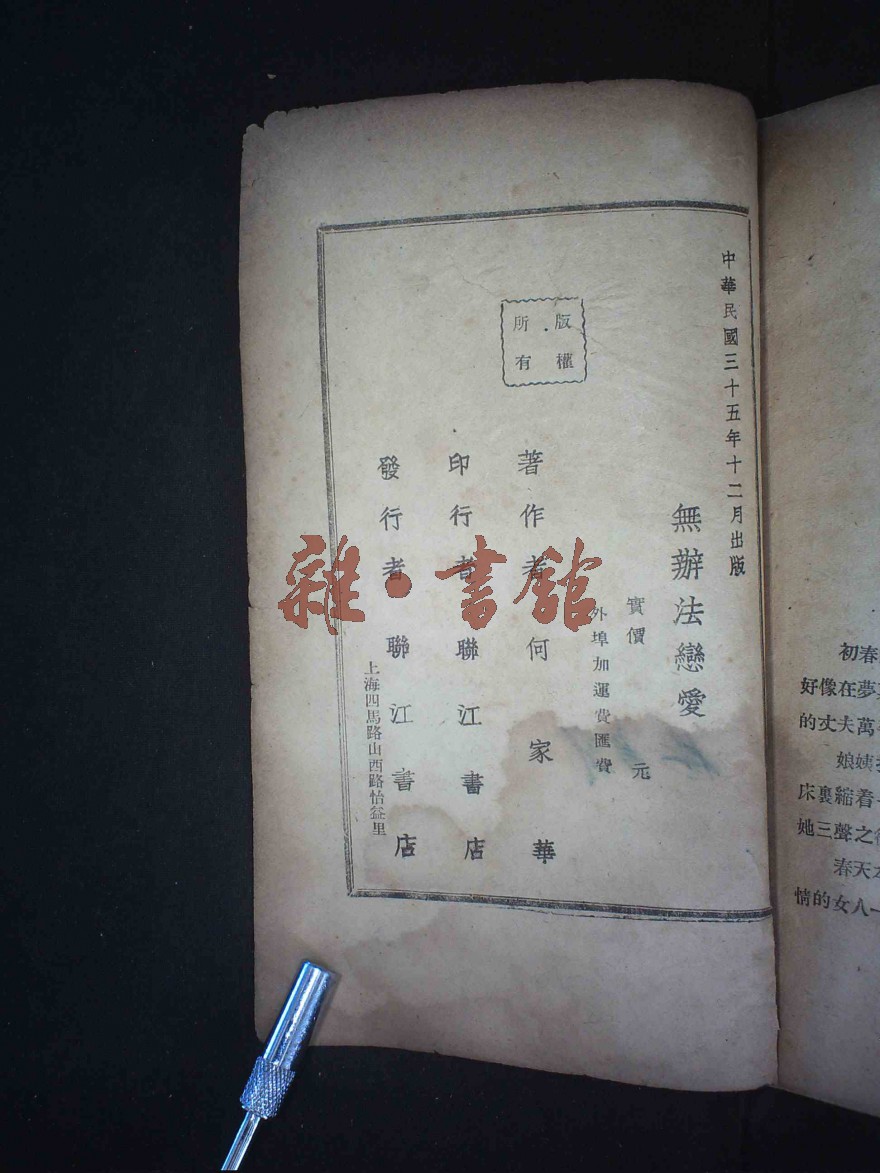 中華民國三十五年十二月出版
無辦法戀愛
實價 元
外埠加運費匯費
版權
所有
著作者 何家華
印行者 聯江書店
發行者 聯江書店
上海四馬路山西路怡益里
雜·書館
初春
好像在夢
的丈夫萬
娘姨
床裏縮着
她三聲之
春天
情的女人一